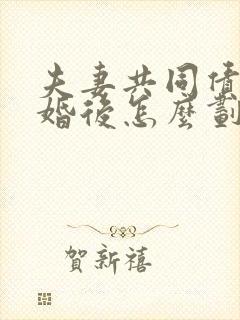 夫妻共同債
婚後怎麼劃
賀新禧